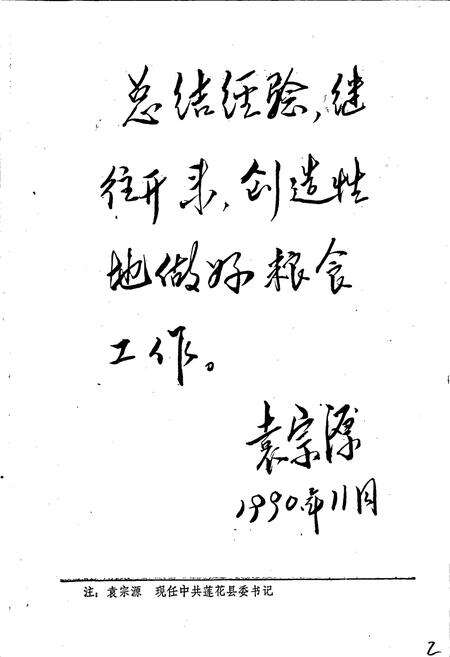 总结经验,继
往开来,创造性
地做好粮食
工作。
袁宗源
1990年11月
注:袁宗源 现任中共莲花县委书记
2